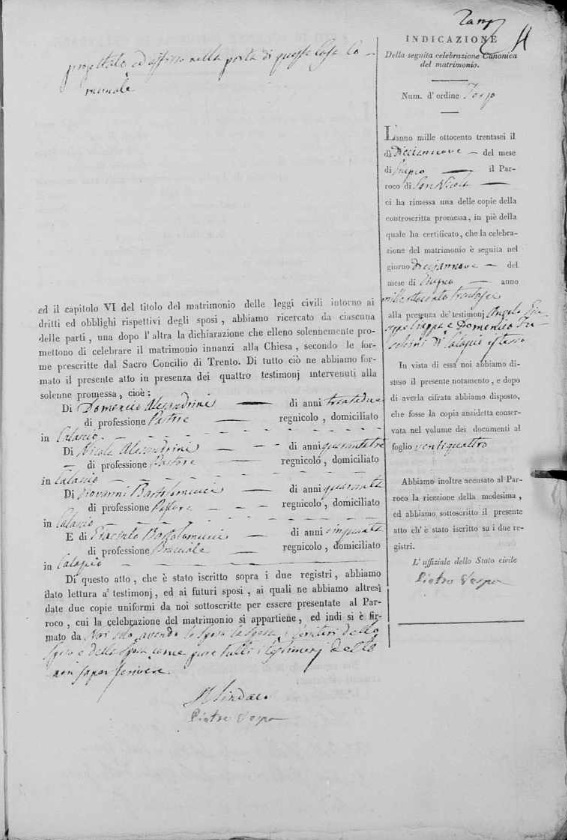 progettato ed affisso nella porta di questa Casa Co-
munale
ed il capitolo VI del titolo del matrimonio delle leggi civili intorno ai
dritti ed obblighi rispettivi degli sposi, abbiamo ricercato da ciascuna
delle parti, una dopo l'altra la dichiarazione che elleno solennemente pro-
mettono di celebrare il matrimonio innanzi alla Chiesa, secondo le for-
me prescritte dal Sacro Concilio di Trento. Di tutto ciò ne abbiamo for-
mato il presente atto in presenza dei quattro testimonj intervenuti alla
solenne promessa, cioè:
Di Domenico Alesandrini di anni trentadue
di professione Pastore regnicolo, domiciliato
in Calascio
Di Nicola Alesandrini di anni quarantatre
di professione Pastore regnicolo, domiciliato
in Calascio
Di Giovanni Bartolomucci di anni quaranta
di professione Pastore regnicolo, domiciliato
in Calascio
E di Bartolomucci di anni cinquanta
di professione Bracciale regnicolo, domiciliato
in Calascio
Di questo atto, che è stato iscritto sopra i due registri, abbiamo
dato lettura a' testimonj, ed ai futuri sposi, ai quali ne abbiamo altresì
date due copie uniformi da noi sottoscritte per essere presentate al Par-
roco, cui la celebrazione del matrimonio si appartiene, ed indi si è fir-
mato da Noi solo avendo lo sposo la sposa, i genitori dello
sposo e della sposa come pure tutti i testimonj detto
non saper scrivere
Il Sindaco
Pietro Vespa
INDICAZIONE
Della seguita celebrazione Canonica
del matrimonio.
Num. d'ordine Terzo
L'anno mille ottocento trentasei il
dì Diciannove del mese
di Giugno il Par-
roco di San Nicola
ci ha rimessa una delle copie della
controscritta promessa, in piè della
quale ha certificato, che la celebra-
zione del matrimonio è seguita nel
giorno Diciannove del
mese di Giugno anno
mille ottocento trentasei
alla presenza de' testimonj Angelo
e Domenico
di Calascio
In vista di essa noi abbiamo di-
steso il presente notamento, e dopo
di averla cifrata abbiamo disposto,
che fosse la copia ansidetta conser-
vata nel volume dei documenti al
foglio ventiquattro
Abbiamo inoltre accusato al Par-
roco la ricezione della medesima,
ed abbiamo sottoscritto il presente
atto ch'è stato iscritto su i due re-
gistri.
L'uffiziale dello Stato civile
Pietro Vespa